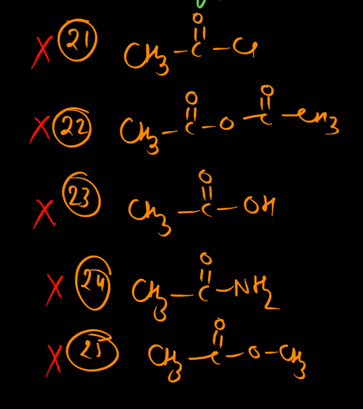 X 21 CH3-C(=O)-Cl
X 22 CH3-C(=O)-O-C(=O)-CH3
X 23 CH3-C(=O)-OH
X 24 CH3-C(=O)-NH2
X 25 CH3-C(=O)-O-CH3